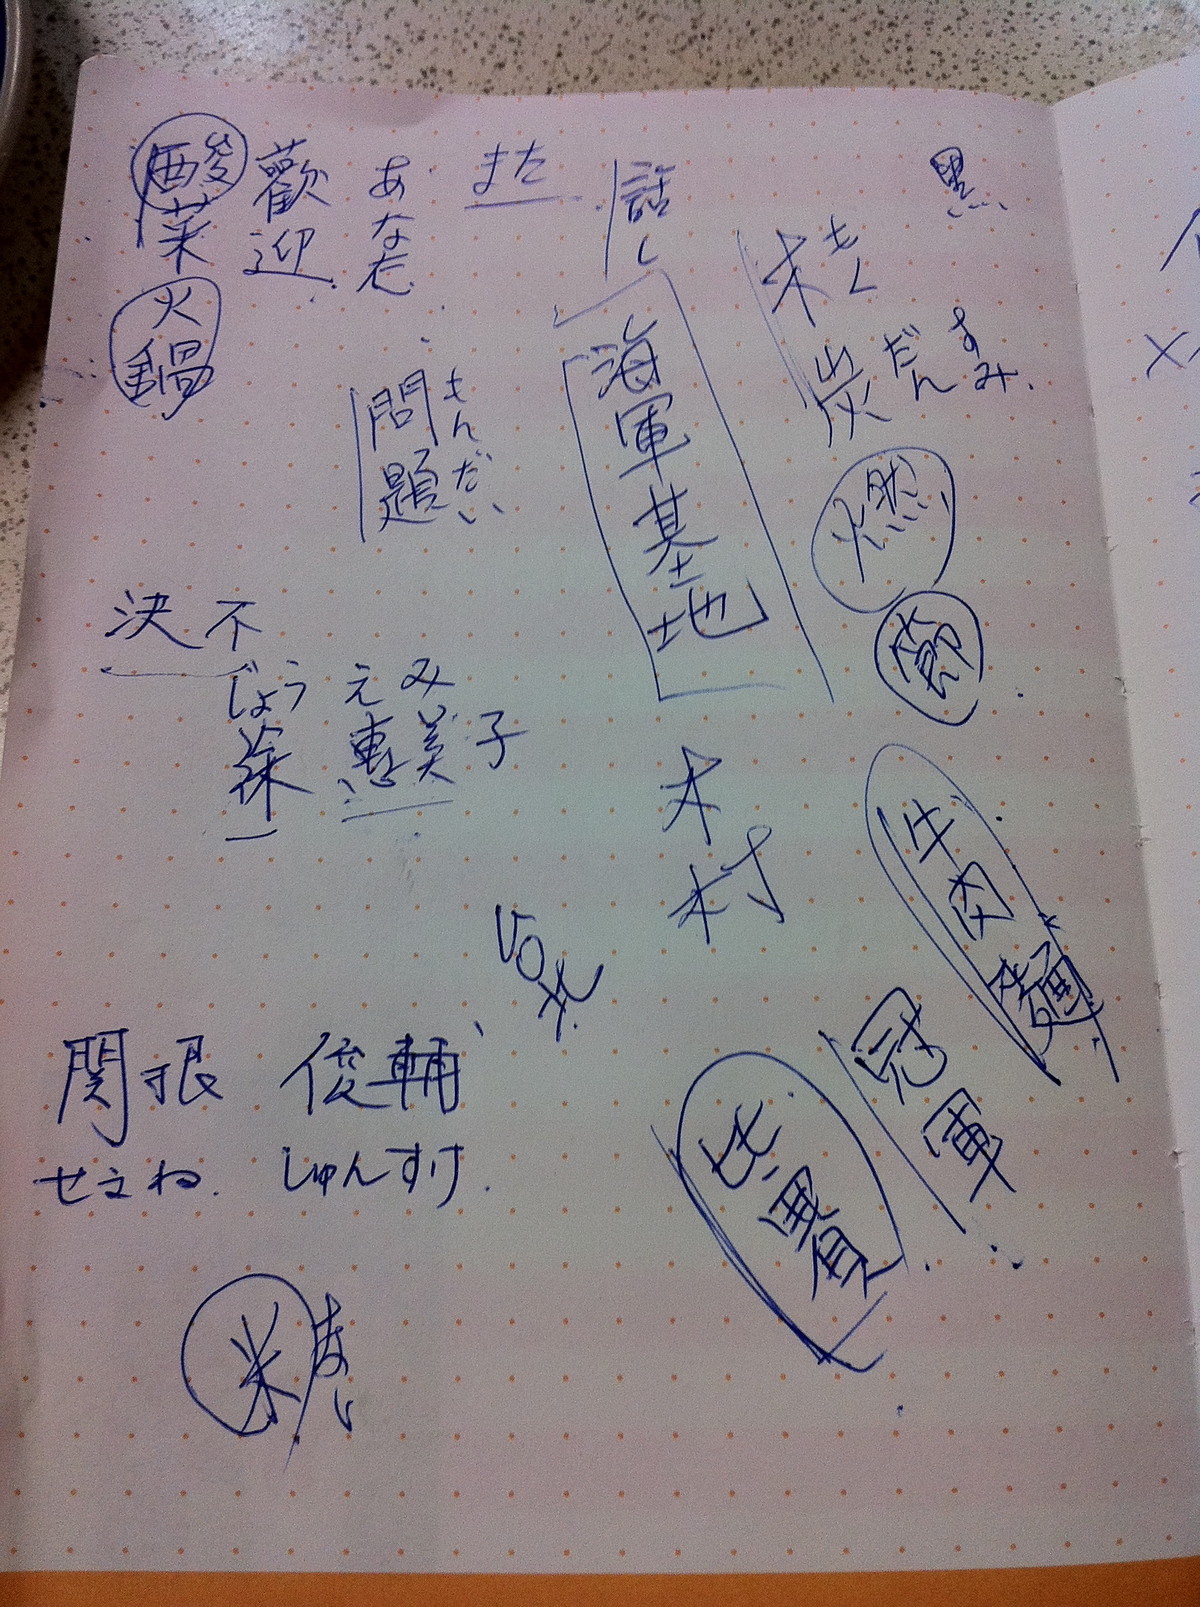 酸菜
火鍋
歡迎
あなた
また
話し
黒
木 もく
炭 だん すみ
問題 もんだい
海軍基地
燃
節
決不
じょう えみ
恵美子
木村
牛肉麵
冠軍
関根 俊輔
せきね しゅんすけ
米 まい